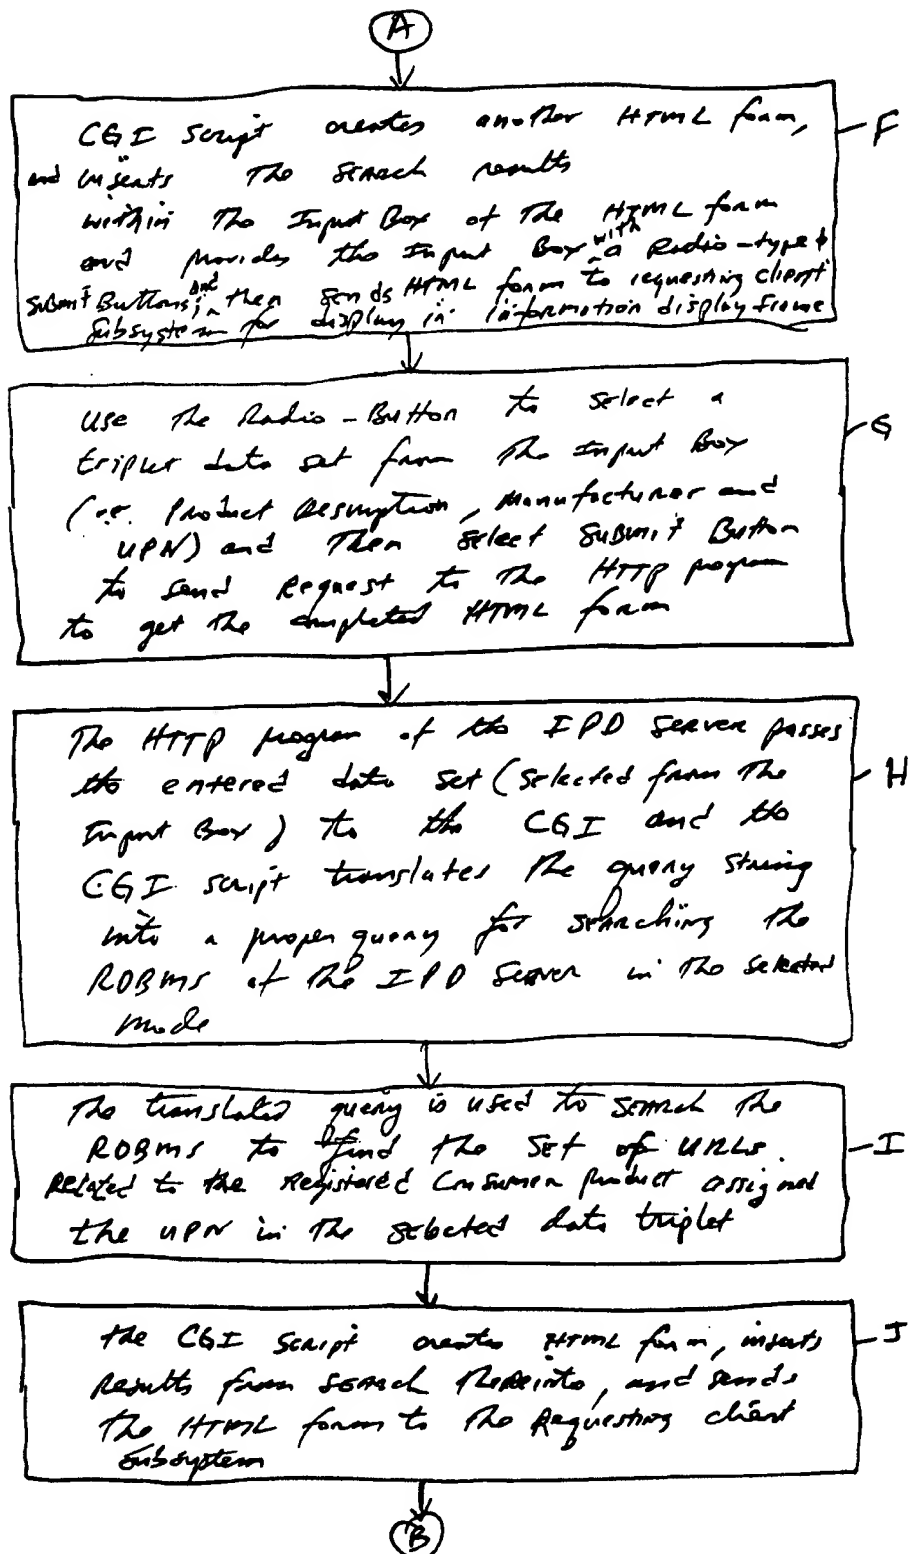 A
CGI Script creates another HTML form,
and inserts the search results
within the Input Box of the HTML form
and provides the Input Box with a Radio-type &
Submit Buttons; and then sends HTML form to requesting client
subsystem for display in information display frame
F
Use the Radio-Button to select a
triplet data set from the Input Box
(i.e. Product Description, Manufacturer and
UPN) and then select Submit Button
to send Request to the HTTP program
to get the completed HTML form
G
The HTTP program of the IPD Server passes
the entered data set (selected from the
Input Box) to the CGI and the
CGI script translates the query string
into a proper query for searching the
RDBMS of the IPD Server in the selected
mode
H
The translated query is used to search the
RDBMS to find the set of URLs
Related to the Registered Consumer product assigned
the UPN in the selected data triplet
I
the CGI Script creates HTML form, inserts
Results from search thereinto, and sends
the HTML form to the Requesting client
subsystem
J
B